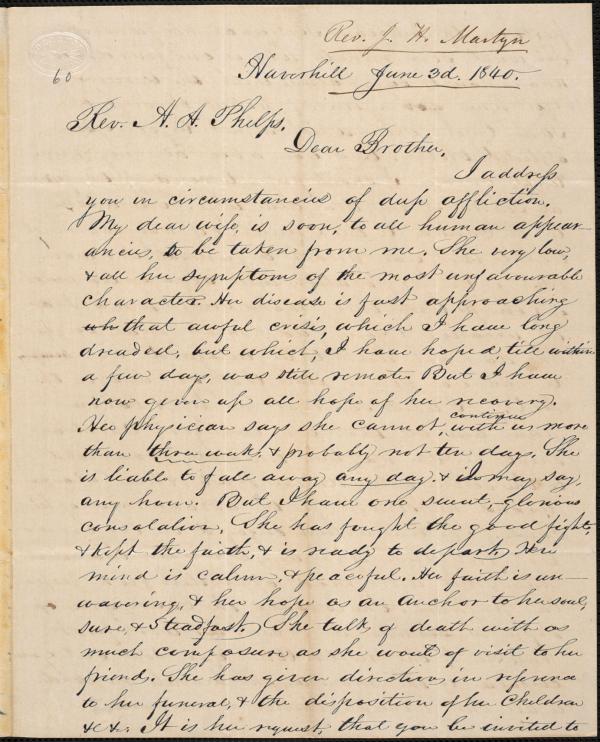 Rev. J. H. Martyn
60
Haverhill June 3d. 1840.
Rev. A. A. Phelps.
Dear Brother,
I address
you in circumstances of deep affliction.
My dear wife, is soon, to all human appear-
ancies, to be taken from me. She very low,
& all her symptoms of the most unfavourable
character. Her disease is fast approaching
wh that awful crisis, which I have long
dreaded, but which, I have hoped, till within
a few days, was still remote. But I have
now given up all hope of her recovery.
Her physician says she cannot continue with us more
than three weeks, & probably not ten days. She
is liable to fall away any day, & I may say,
any hour. But I have one sweet, glorious
consolation, She has fought the good fight,
& kept the faith, & is ready to depart. Her
mind is calm, & peaceful. Her faith is un-
wavering, & her hope as an anchor to her soul,
sure, & Steadfast. She talks of death with as
much composure as she would of visit to her
friends. She has given directions in reference
to her funeral, & the disposition of her Children
&c&c. It is her request, that you be invited to